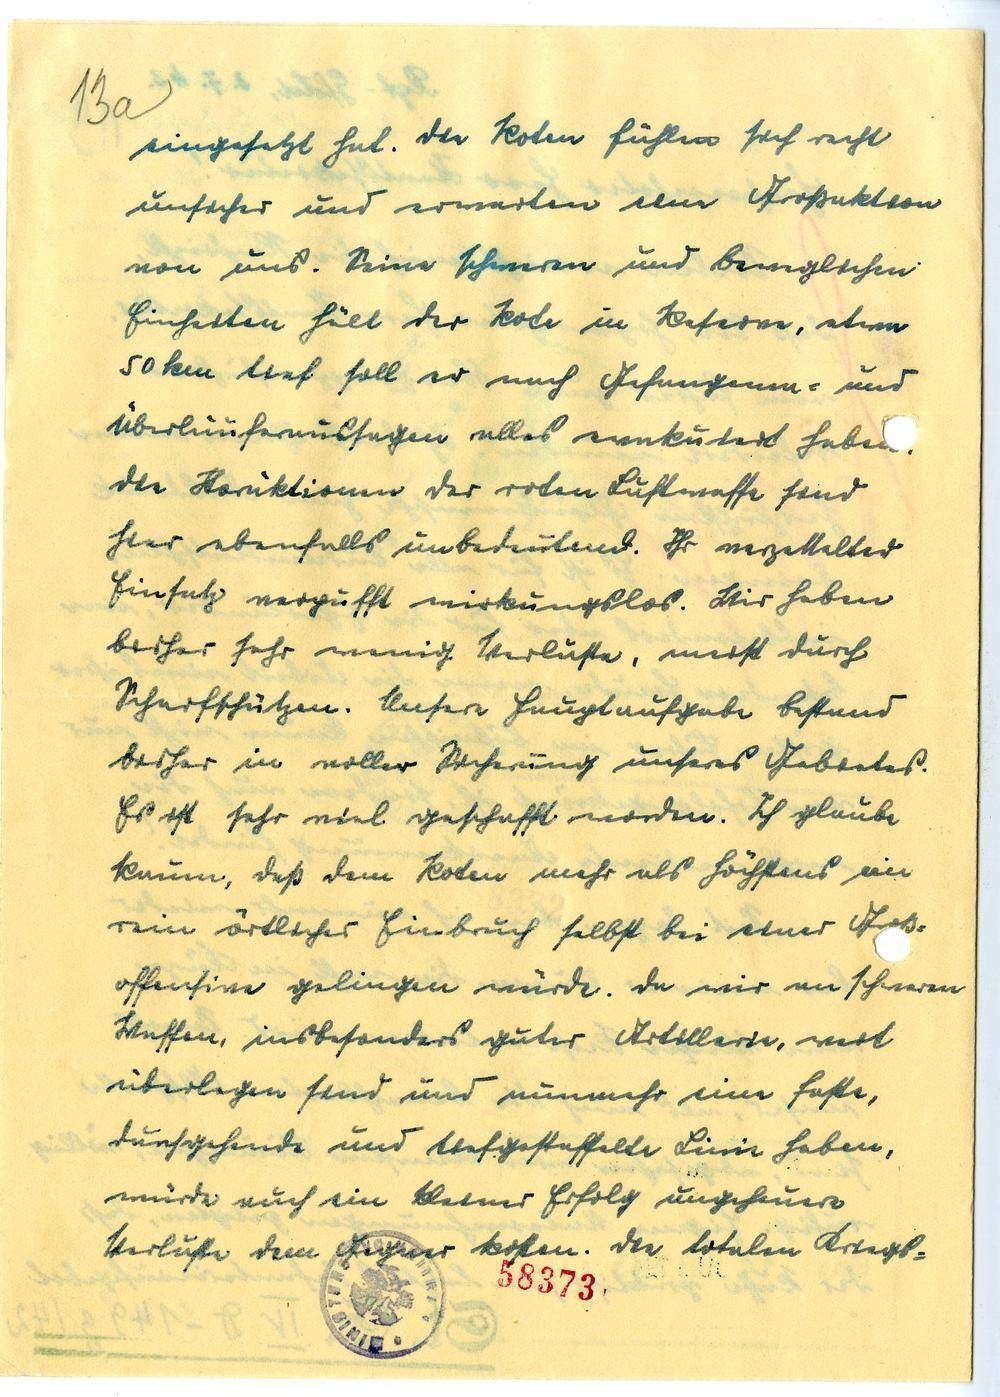 13a
eingesetzt hat. Die Roten fühlen sich recht
unsicher und erwarten eine Großaktion
von uns. Seine schweren und beweglichen
Einheiten hält der Rote in Reserve, etwa
50 km tief soll er nach Gefangenen- und
Überläuferaussagen alles evakuiert haben.
Die Voraktionen der roten Luftwaffe sind
hier ebenfalls unbedeutend. Ihr verzettelter
Einsatz verpufft wirkungslos. Wir haben
bisher sehr wenig Verluste, meist durch
Scharfschützen. Unsere Hauptaufgabe bestand
bisher in voller Sicherung unseres Gebietes.
Es ist sehr viel geschafft worden. Ich glaube
kaum, daß dem Roten mehr als höchstens ein
rein örtlicher Einbruch selbst bei einer Groß-
offensive gelingen würde. Da wir an schweren
Waffen, insbesonders guter Artillerie, weit
überlegen sind und nunmehr eine feste,
durchgehende und tiefgestaffelte Linie haben,
würde auch ein kleiner Erfolg ungeheuere
Verluste dem Gegner kosten. Die totalen Kriegs-
58373